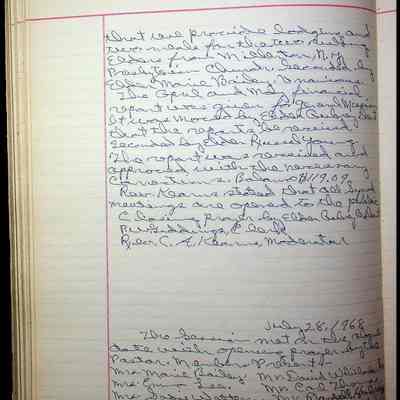 that we provide lodging and
two meals for the two ruling
Elders from Millerton, N.Y.
Presbyterian Church. Seconded by
Elder Marie Bailey. Unanimous.
The April and May financial
report was given by
It was moved by Elder
that the reports be received
Seconded by Elder Russel Young
The report was received and
approved with the necessary
Corrections. Balance $119.09.
Rev. Kearns stated that all board
meetings are opened to the public
Closing prayer by Elder
Clerk
Rev. C. A. Kearns, Moderator
July 28, 1968
The Session met on the above
date with opening prayer by the
Pastor. Members Present:
Mrs. Marie Bailey Mr. David
Mrs. Emma Lee, Mr. Carl
Mrs.